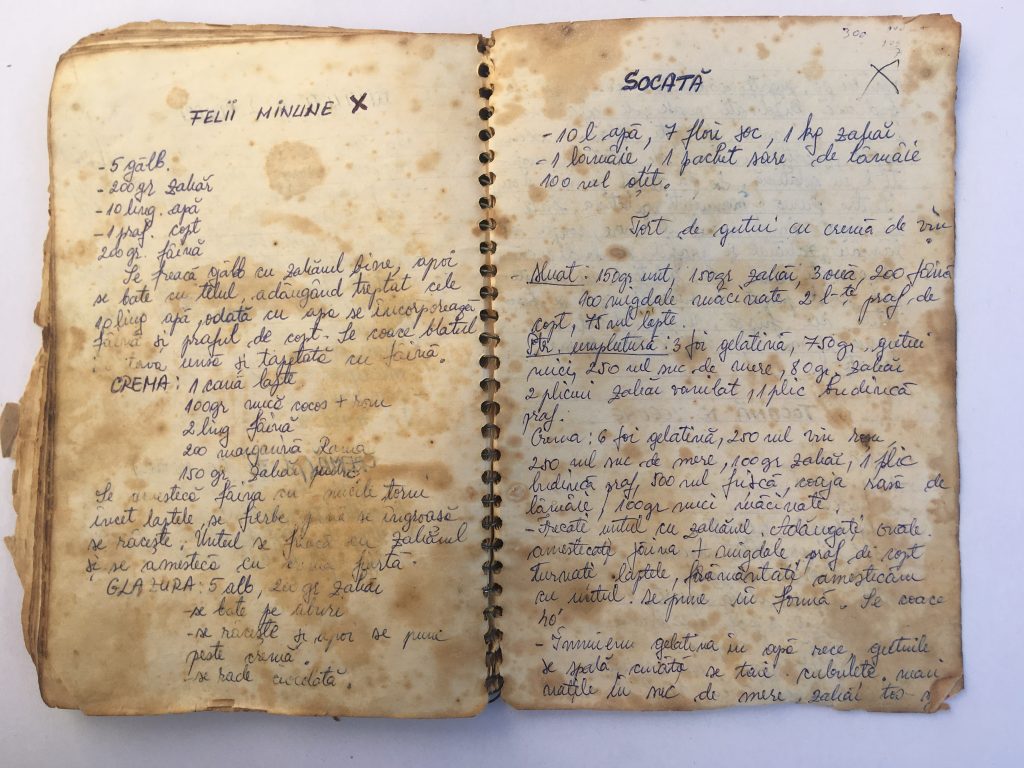 FELII MINUNE X
- 5 gălb.
- 200 gr zahăr
- 10 ling. apă
- 1 praf. copt
200 gr. făină
Se freacă gălb cu zahărul bine, apoi
se bate cu telul, adăugând treptat cele
10 ling apă, odată cu apa se incorporează
făina și praful de copt. Se coace blatul
tava unsă și tapetată cu făină.
CREMA: 1 cană lapte
100 gr nucă cocos + rom
2 ling făină
200 margarină Rama
150 gr. zahăr pudră
Se amestecă făina cu nucile torni
încet laptele, se fierbe, până se îngroașă
se răcește. Untul se freacă cu zahărul
și se amestecă cu
GLAZURA: 5 alb, 200 gr zahăr
- se bate pe aburi
- se răcește și apoi se pune
peste cremă.
- se rade ciocolată.
300
X
SOCATĂ
- 10 l apă, 7 flori soc, 1 kg zahăr
- 1 lămâie, 1 pachet sare de lămâie
100 ml oțet.
Tort de gutui cu cremă de vin
- Aluat: 150 gr unt, 150 gr zahăr, 3 ouă, 200 făină
100 migdale măcinate 2 l-țe praf de
copt, 75 ml lapte.
Ptr. umplutură: 3 foi gelatină, 750 gr. gutui
mici, 250 ml suc de mere, 80 gr. zahăr
2 plicuri zahăr vanilat, 1 plic budincă
praf.
Crema: 6 foi gelatină, 250 ml vin
250 ml suc de mere, 100 gr zahăr, 1 plic
budincă praf 500 ml frișcă, coaja rasă de
lămâie, 100 gr nuci măcinate.
- Frecați untul cu zahărul. Adăugați ouăle
amestecați făina + migdale, praf de copt
turnați laptele, frământați amestecăm
cu untul se pune în formă. Se coace
30'
- Înmuiem gelatina în apă rece, gutuile
se spală, curăță se taie cubulețe
în suc de mere, zahăr